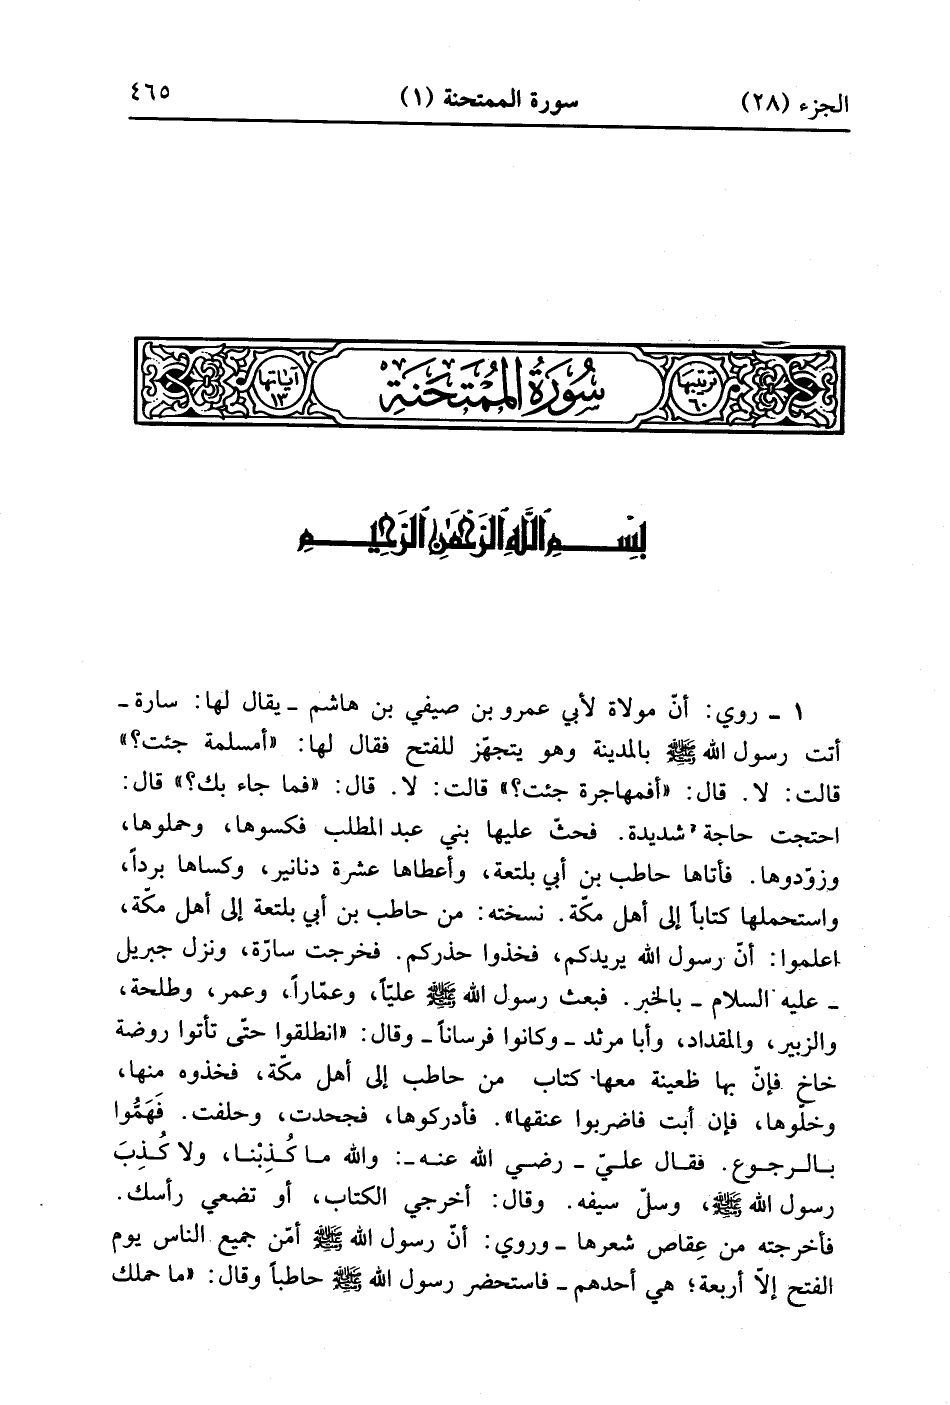 الجزء (٢٨) سورة الممتحنة (١) ٤٦٥
ترتيبها ٦٠ سُورَةُ المُمْتَحنَةِ آياتها ١٣
بِسْمِ ٱللَّهِ ٱلرَّحْمَٰنِ ٱلرَّحِيمِ
١ ـ روي: أنّ مولاة لأبي عمرو بن صيفي بن هاشم ـ يقال لها: سارة ـ
أتت رسول الله ﷺ بالمدينة وهو يتجهّز للفتح فقال لها: «أمسلمة جئت؟»
قالت: لا. قال: «أفمهاجرة جئت؟» قالت: لا. قال: «فما جاء بك؟» قال:
احتجت حاجة شديدة. فحثّ عليها بني عبد المطلب فكسوها، وحملوها،
وزوّدوها. فأتاها حاطب بن أبي بلتعة، وأعطاها عشرة دنانير، وكساها برداً،
واستحملها كتاباً إلى أهل مكّة. نسخته: من حاطب بن أبي بلتعة إلى أهل مكّة،
اعلموا: أنّ رسول الله يريدكم، فخذوا حذركم. فخرجت سارّة، ونزل جبريل
ـ عليه السلام ـ بالخبر. فبعث رسول الله ﷺ عليّاً، وعمّاراً، وعمر، وطلحة،
والزبير، والمقداد، وأبا مرثد ـ وكانوا فرساناً ـ وقال: «انطلقوا حتّى تأتوا روضة
خاخ فإنّ بها ظعينة معها كتاب من حاطب إلى أهل مكّة، فخذوه منها،
وخلّوها، فإن أبت فاضربوا عنقها». فأدركوها، فجحدت، وحلفت. فَهَمُّوا
بالرجوع. فقال عليّ ـ رضي الله عنه ـ: والله ما كُذِبْنا، ولا كُذِبَ
رسول الله ﷺ، وسلّ سيفه. وقال: أخرجي الكتاب، أو تضعي رأسك.
فأخرجته من عِقاص شعرها ـ وروي: أنّ رسول الله ﷺ أمّن جميع الناس يوم
الفتح إلاّ أربعة؛ هي أحدهم ـ فاستحضر رسول الله ﷺ حاطباً وقال: «ما حملك